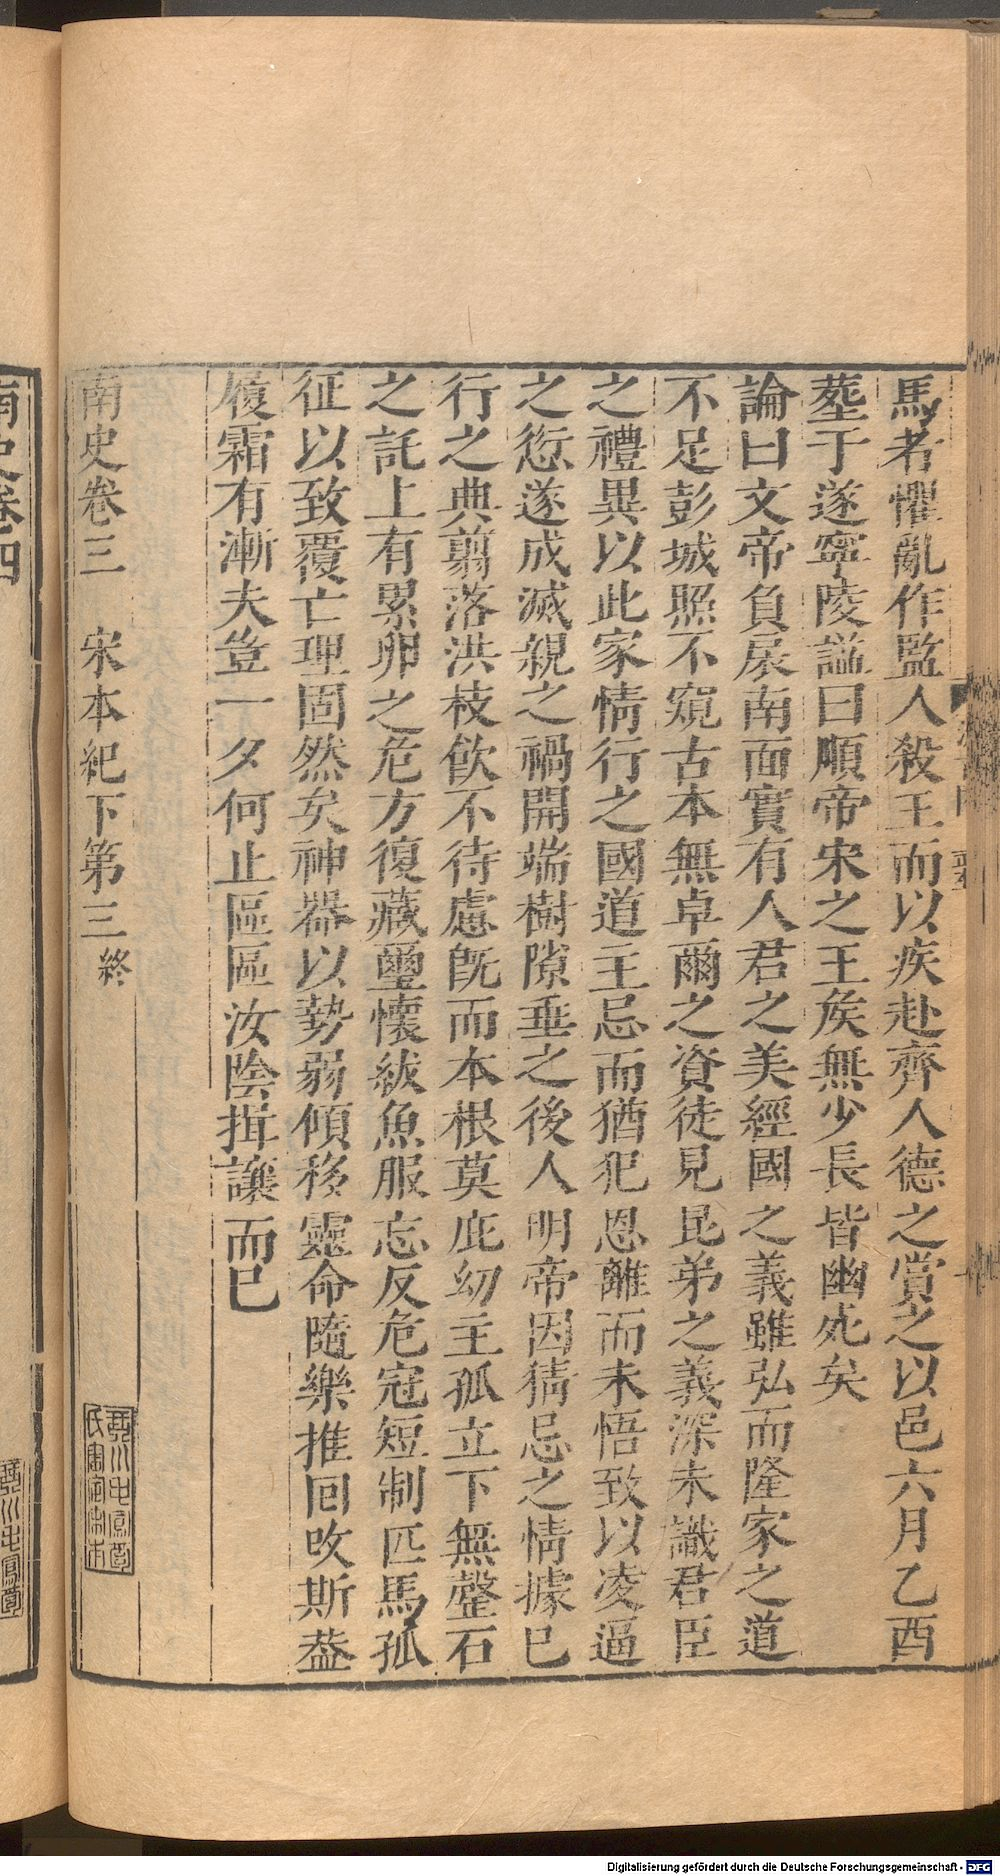 馬者懼亂作監人殺王而以疾赴齊人德之賞之以邑六月乙酉
葬于遂寧陵諡曰順帝宋之王侯無少長皆幽死矣
論曰文帝負扆南面實有人君之美經國之義雖弘而隆家之道
不足彭城照不窺古本無卓爾之資徒見昆弟之義深未識君臣
之禮異以此家情行之國道主忌而猶犯恩離而未悟致以凌逼
之愆遂成滅親之禍開端樹隙垂之後人明帝因猜忌之情據已
行之典翦落洪枝飮不待慮旣而本根莫庇幼主孤立下無磐石
之託上有累卵之危方復藏璽懷紱魚服忘反危冠短制匹馬孤
征以致覆亡理固然矣神器以勢弱傾移靈命隨樂推囘攺斯葢
履霜有漸夫豈一夕何止區區汝陰揖讓而已
南史卷三　宋本紀下第三終
南史卷四
Digitalisierung gefördert durch die Deutsche Forschungsgemeinschaft - DFG